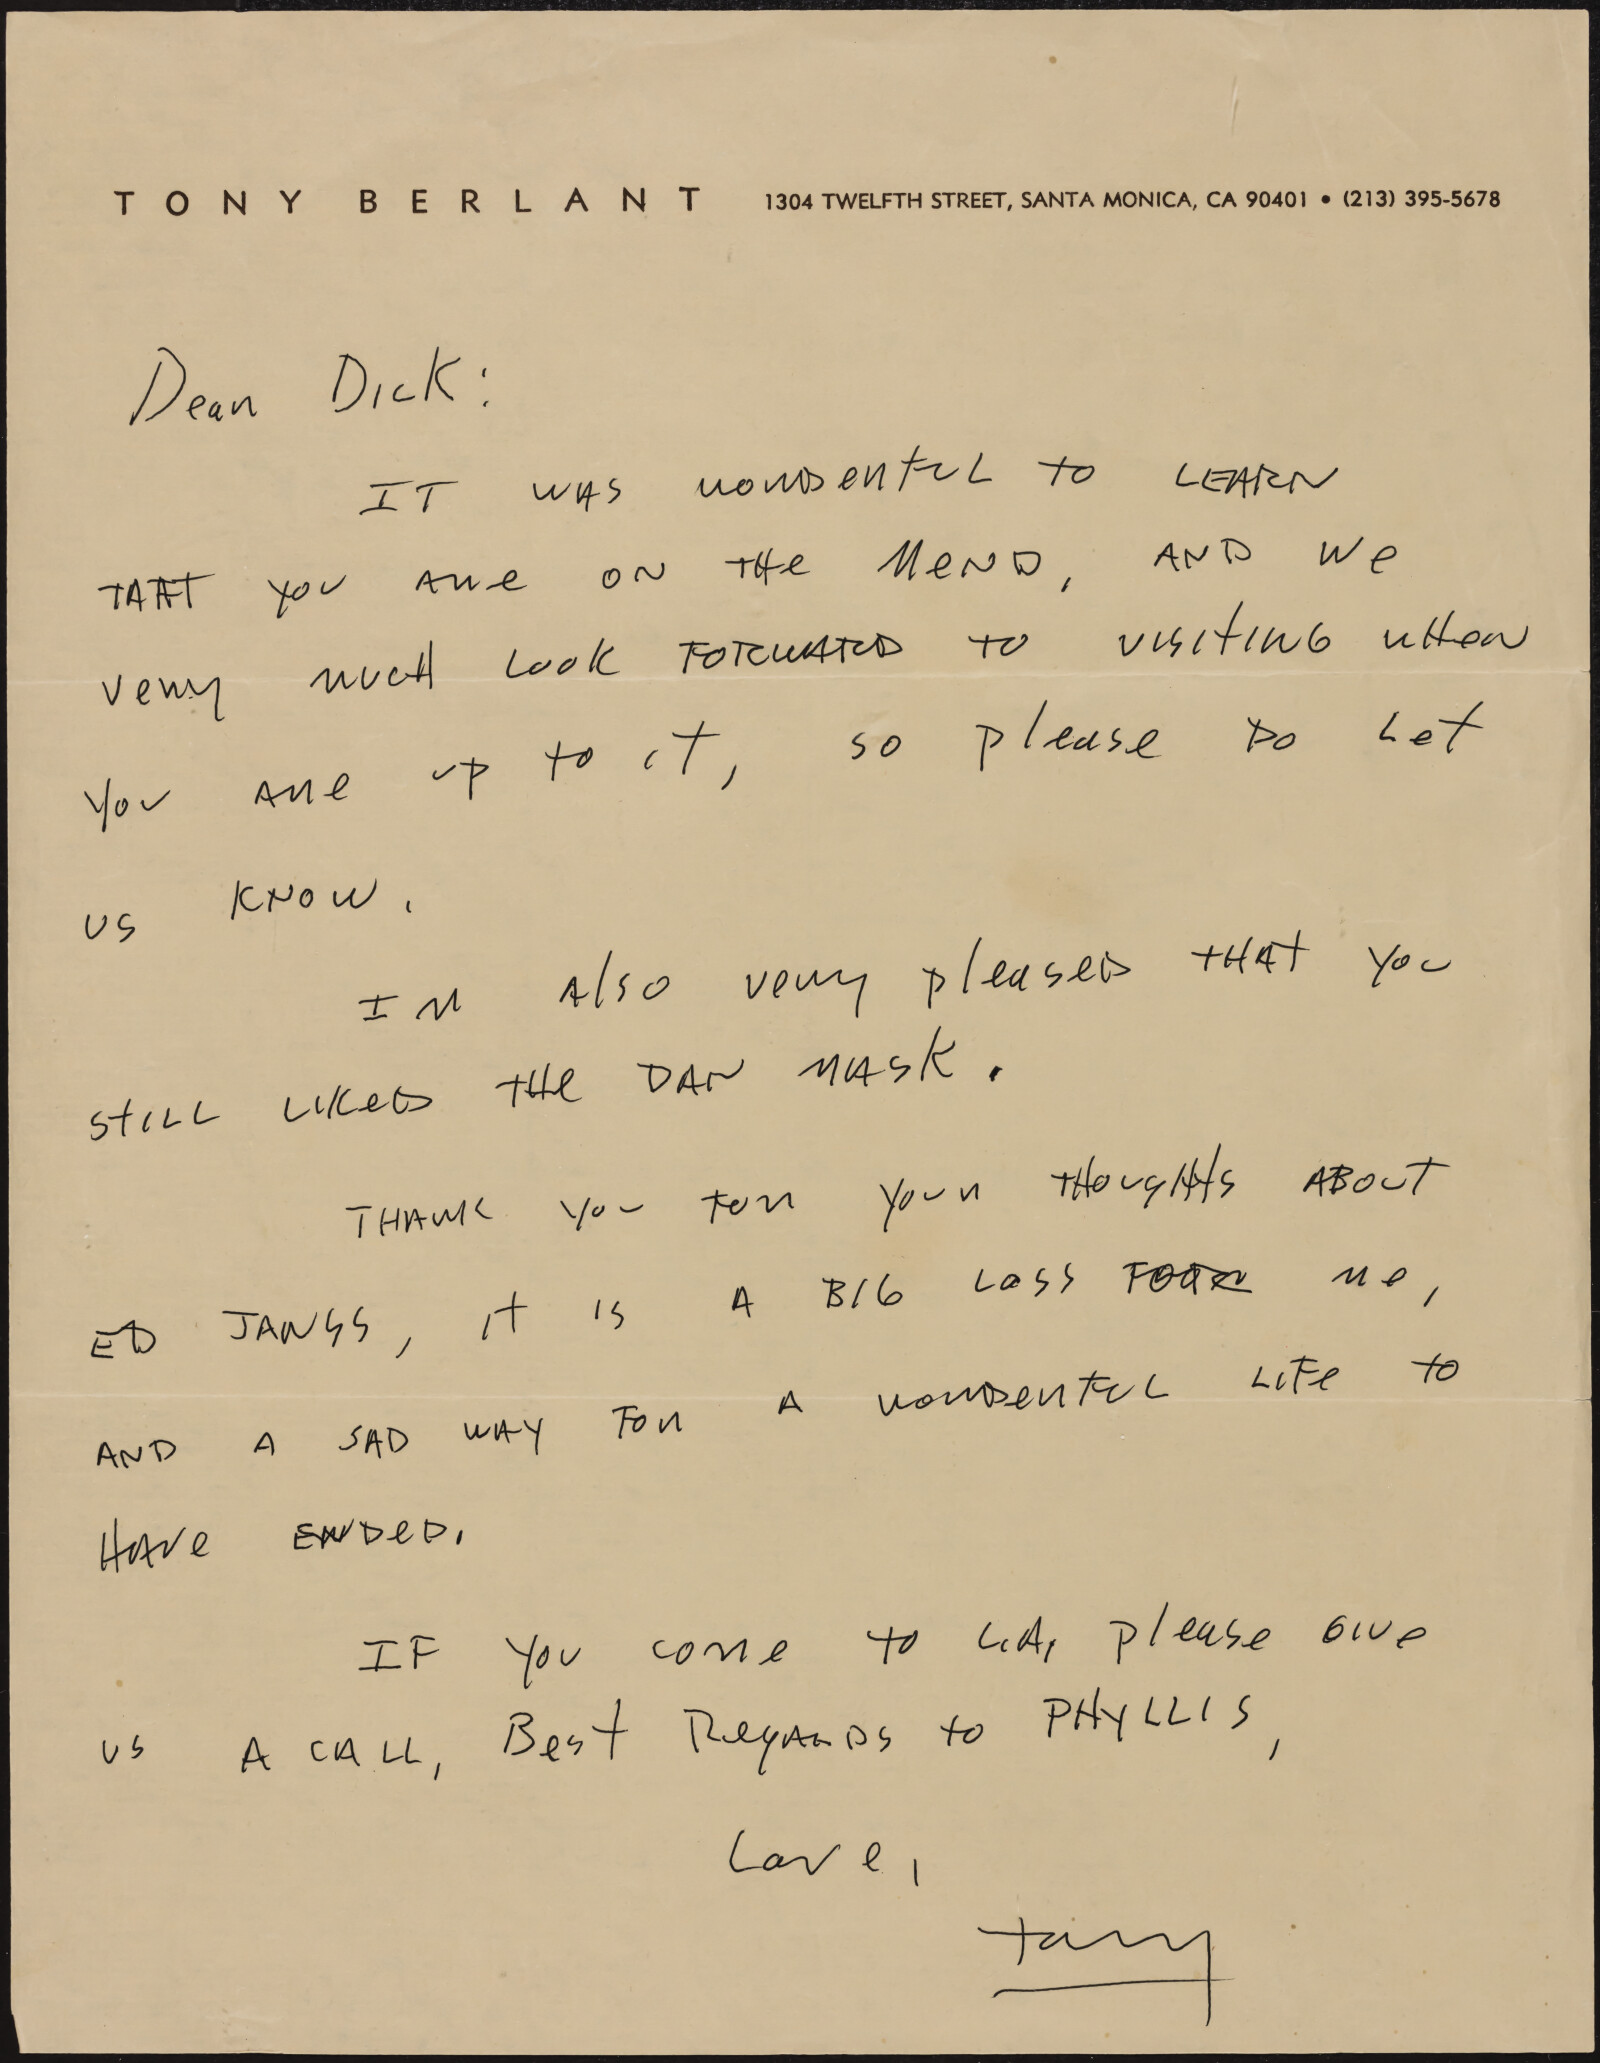 TONY BERLANT 1304 TWELFTH STREET, SANTA MONICA, CA 90401 • (213) 395-5678
Dear Dick:
IT WAS WONDERFUL TO LEARN
THAT YOU ARE ON THE MEND, AND WE
VERY MUCH LOOK FORWARD TO VISITING WHEN
YOU ARE UP TO IT, SO PLEASE DO LET
US KNOW.
IM ALSO VERY PLEASED THAT YOU
STILL LIKED THE DAN MASK.
THANK YOU FOR YOUR THOUGHTS ABOUT
ED JANSS, IT IS A BIG LOSS FOR ME,
AND A SAD WAY FOR A WONDERFUL LIFE TO
HAVE ENDED.
IF YOU COME TO L.A, PLEASE GIVE
US A CALL, BEST REGARDS TO PHYLLIS,
Love,
Tony